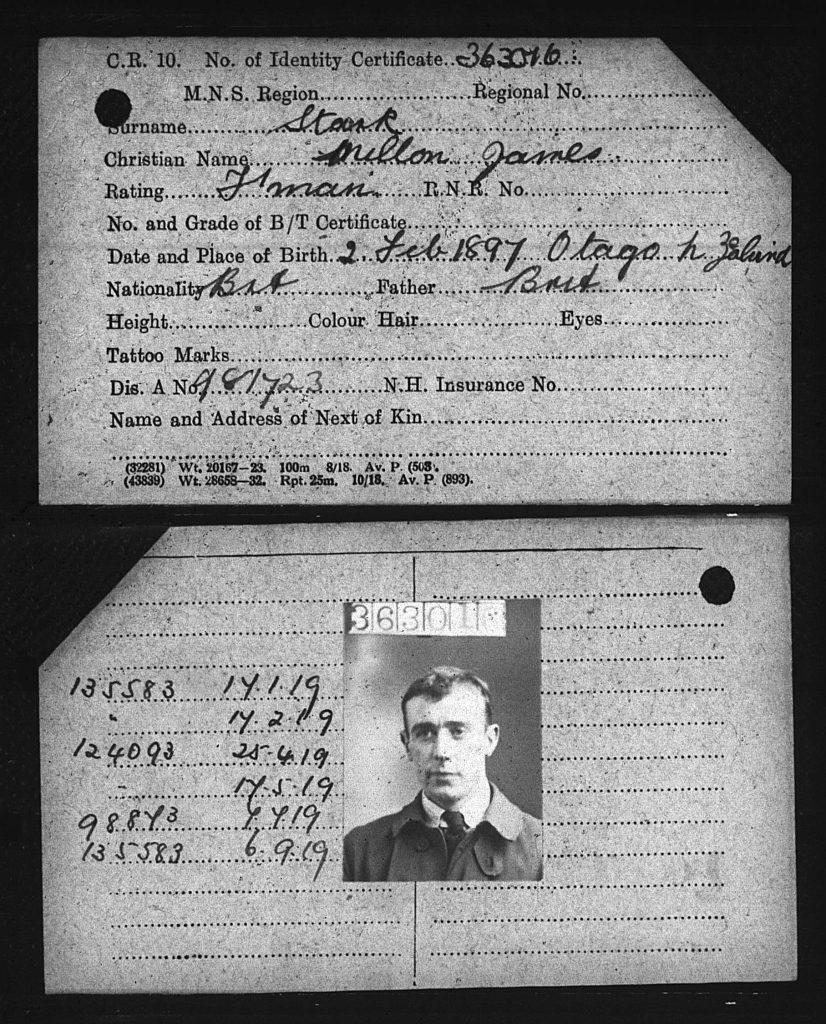 C.R. 10. No. of Identity Certificate 363016
M.N.S. Region Regional No.
Surname Stark
Christian Name Millon James
Rating F'man R.N.R. No.
No. and Grade of B/T Certificate
Date and Place of Birth 2 Feb 1897 Otago N Zealand
Nationality Brit Father Brit
Height Colour Hair Eyes
Tattoo Marks
Dis. A No. 981723 N.H. Insurance No.
Name and Address of Next of Kin
(32281) Wt. 20167—23. 100m 8/18. Av. P. (503).
(43839) Wt. 28658—32. Rpt. 25m. 10/18. Av. P. (893).
36301
135583 17.1.19
" 17.2.19
124093 25.4.19
" 17.5.19
98873 7.7.19
135583 6.9.19